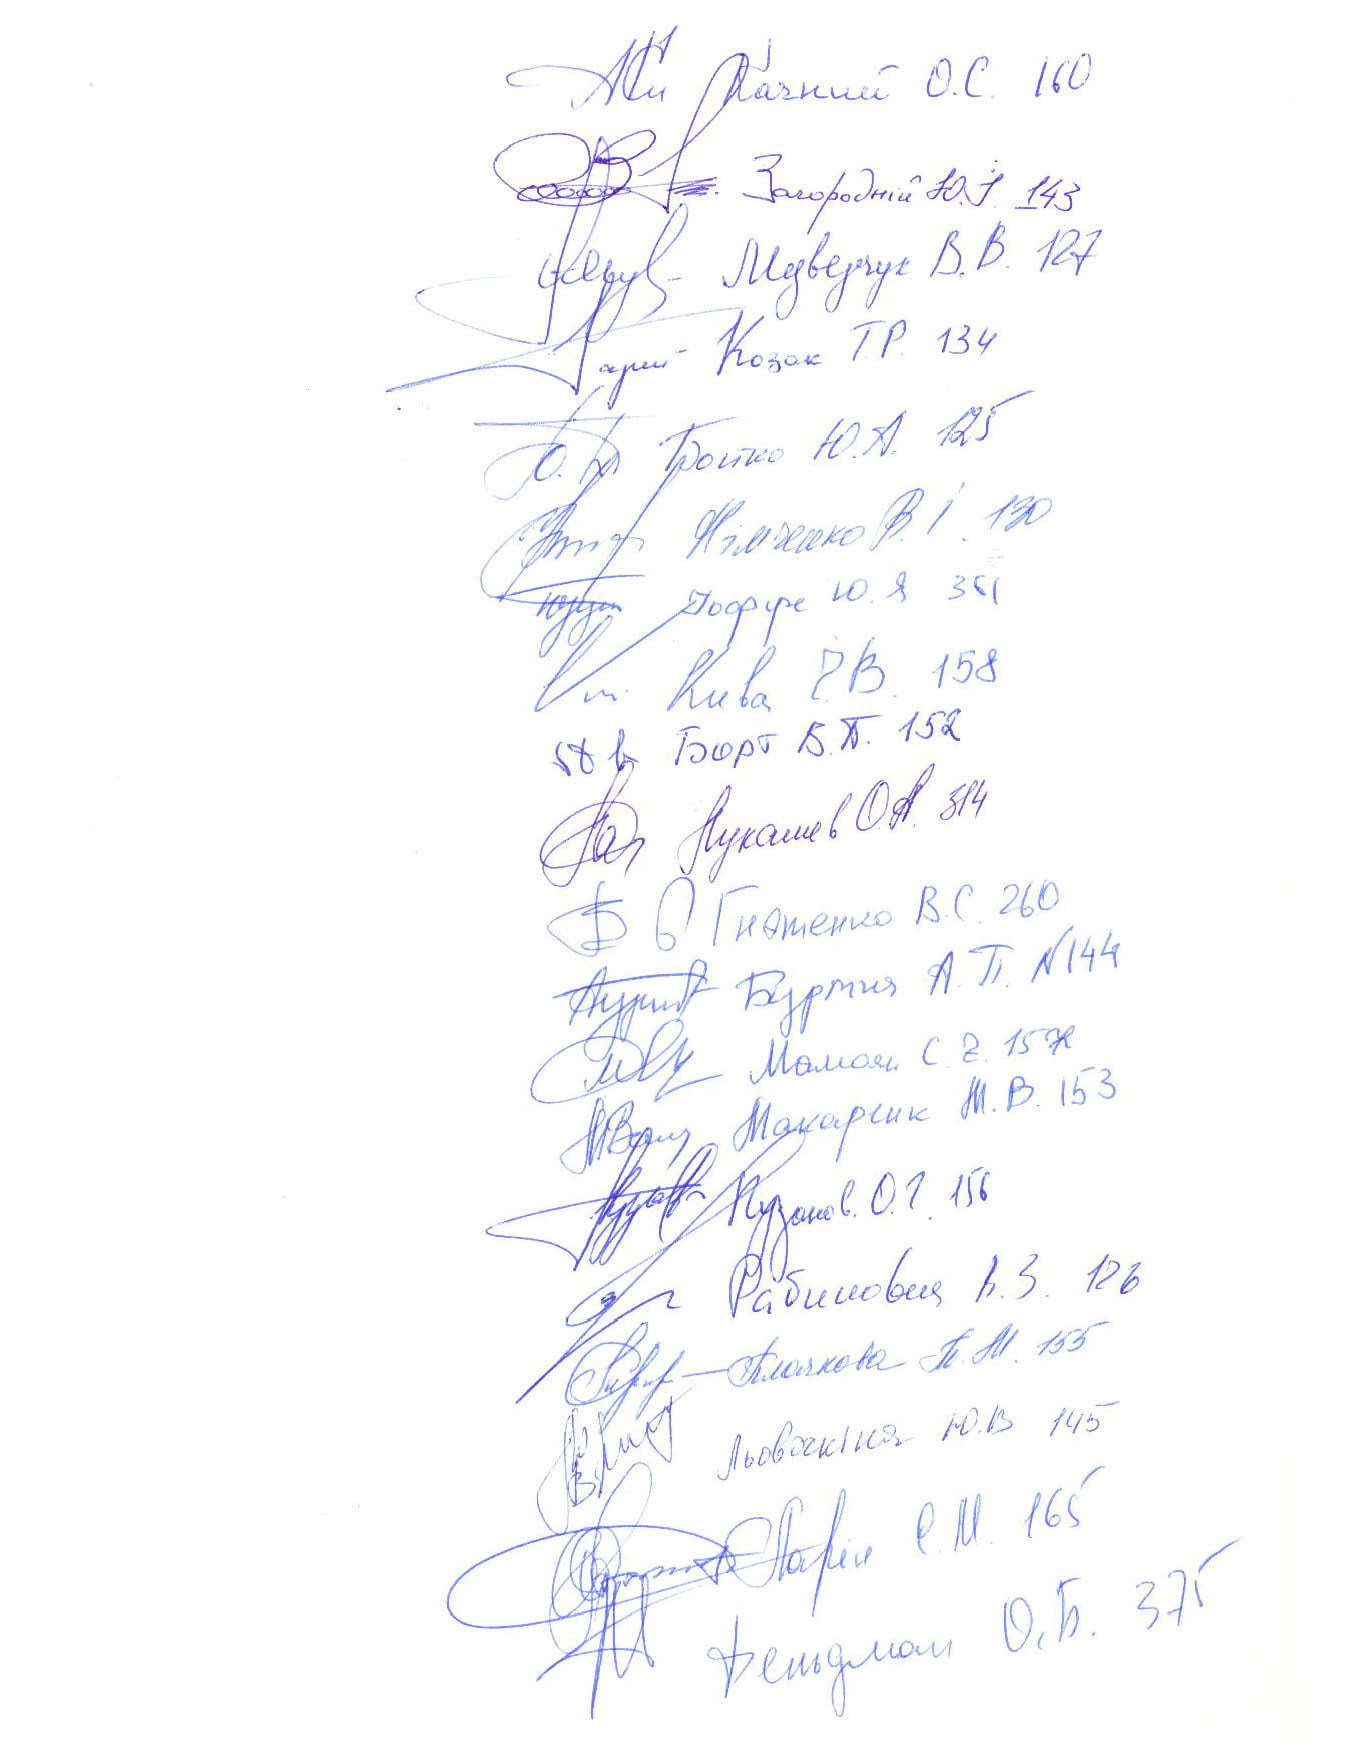 Качний О.С. 160
Загородній Ю.І. 143
Медведчук В.В. 127
Козак Т.Р. 134
Бойко Ю.А. 125
Німченко В.І. 130
Іоффе Ю.Я 361
Кива І.В. 158
Борт В.П. 152
Лукашев О.А. 314
Гнатенко В.С. 260
Бурміч А.П. №144
Мамоян С.Ч. 157
Макаренк М.В. 153
Пузанов О.Г. 156
Рабинович В.З. 126
Плачкова Т.М. 155
Льовочкіна Ю.В 145
Ларін С.М. 165
Фельдман О.Б. 375